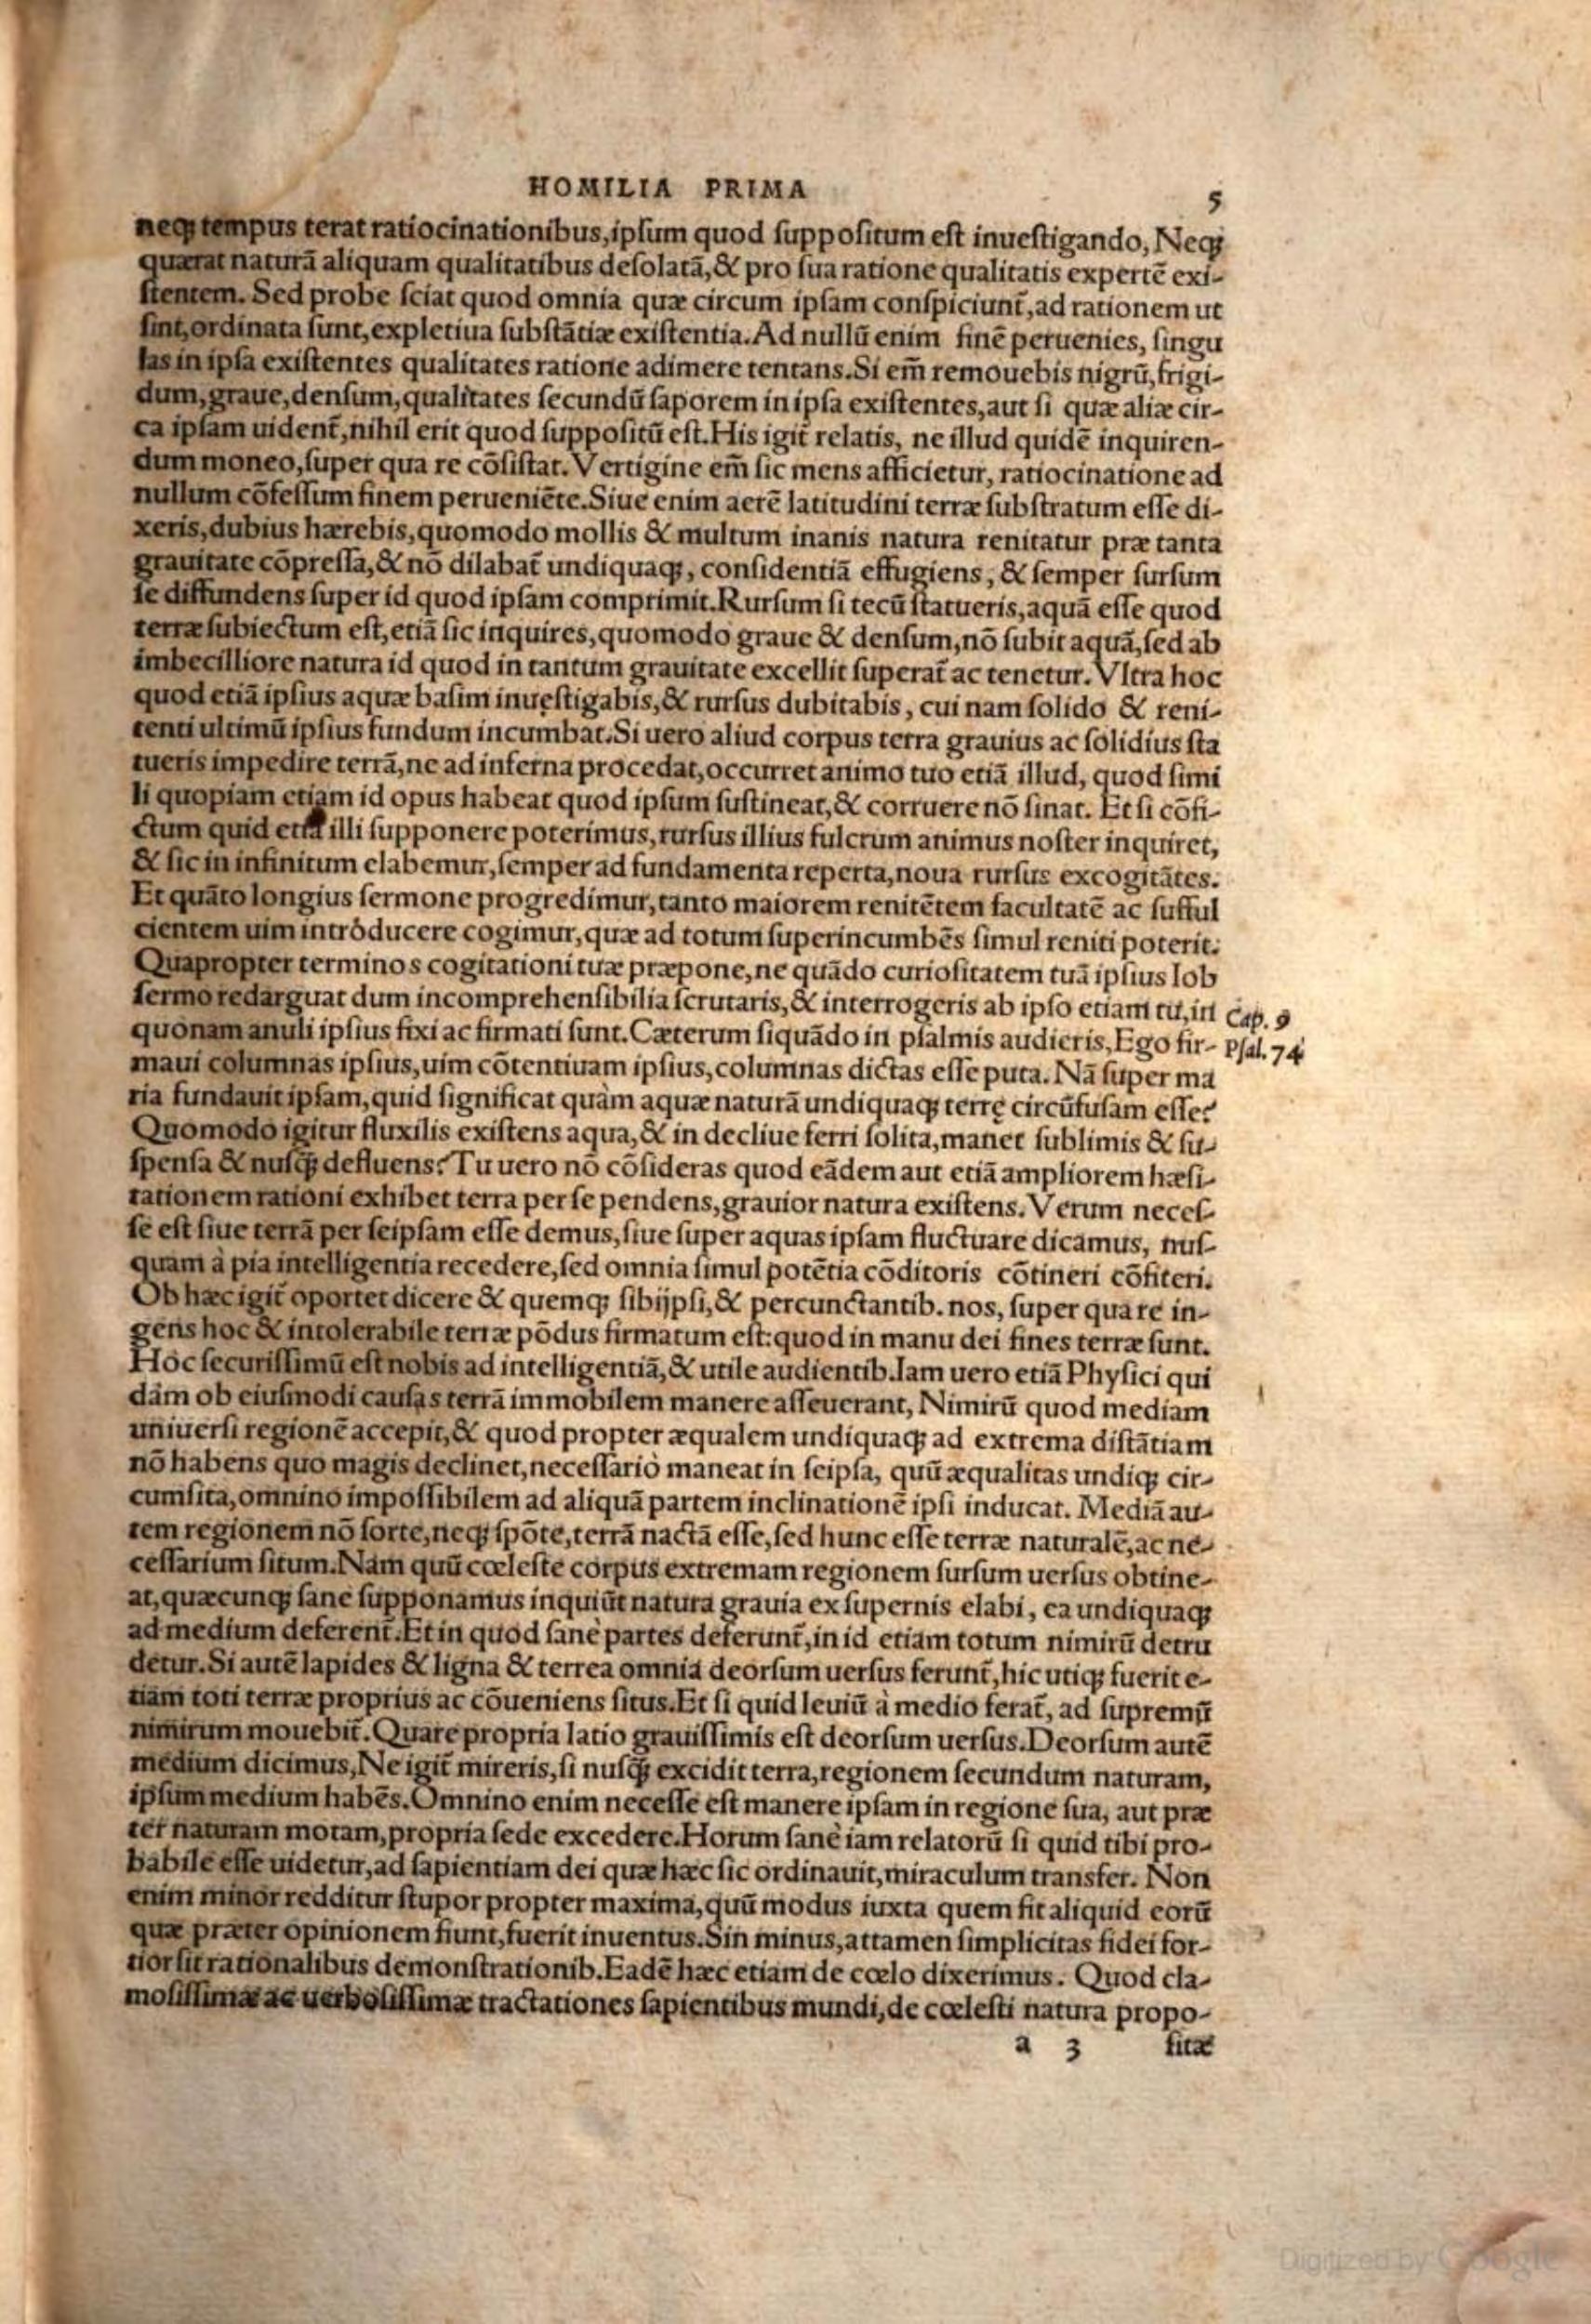 HOMILIA PRIMA 5
neq; tempus terat ratiocinationibus, ipsum quod suppositum est inuestigando, Neq;
quærat naturã aliquam qualitatibus desolatã, & pro sua ratione qualitatis expertẽ exi-
stentem. Sed probe sciat quod omnia quæ circum ipsam conspiciunt̃, ad rationem ut
sint, ordinata sunt, expletiua substãtiæ existentia. Ad nullũ enim finẽ peruenies, singu
las in ipsa existentes qualitates ratione adimere tentans. Si em̃ remouebis nigrũ, frigi-
dum, graue, densum, qualitates secundũ saporem in ipsa existentes, aut si quæ aliæ cir-
ca ipsam uident̃, nihil erit quod suppositũ est. His igit̃ relatis, ne illud quidẽ inquiren-
dum moneo, super qua re cõsistat. Vertigine em̃ sic mens afficietur, ratiocinatione ad
nullum cõfessum finem perueniẽte. Siue enim aerẽ latitudini terræ substratum esse di-
xeris, dubius hærebis, quomodo mollis & multum inanis natura renitatur præ tanta
grauitate cõpressa, & nõ dilabat̃ undiquaq;, considentiã effugiens, & semper sursum
se diffundens super id quod ipsam comprimit. Rursum si tecũ statueris, aquã esse quod
terræ subiectum est, etiã sic inquires, quomodo graue & densum, nõ subit aquã, sed ab
imbecilliore natura id quod in tantum grauitate excellit superat̃ ac tenetur. Vltra hoc
quod etiã ipsius aquæ basim inuęstigabis, & rursus dubitabis, cui nam solido & reni-
tenti ultimũ ipsius fundum incumbat. Si uero aliud corpus terra grauius ac solidius sta
tueris impedire terrã, ne ad inferna procedat, occurret animo tuo etiã illud, quod simi
li quopiam etiam id opus habeat quod ipsum sustineat, & corruere nõ sinat. Et si cõfi-
ctum quid etiã illi supponere poterimus, rursus illius fulcrum animus noster inquiret,
& sic in infinitum elabemur, semper ad fundamenta reperta, noua rursus excogitãtes.
Et quãto longius sermone progredimur, tanto maiorem renitẽtem facultatẽ ac sufful
cientem uim intròducere cogimur, quæ ad totum superincumbẽs simul reniti poterit.
Quapropter terminos cogitationi tuæ præpone, ne quãdo curiositatem tuã ipsius Iob
sermo redarguat dum incomprehensibilia scrutaris, & interrogeris ab ipso etiam tu, in Cap. 9
quonam anuli ipsius fixi ac firmati sunt. Cæterum siquãdo in psalmis audieris, Ego fir- Psal. 74
maui columnas ipsius, uim cõtentiuam ipsius, columnas dictas esse puta. Nã super ma
ria fundauit ipsam, quid significat quàm aquæ naturã undiquaq; terrę circũfusam esse?
Quomodo igitur fluxilis existens aqua, & in decliue ferri solita, manet sublimis & su-
spensa & nusq̃; defluens? Tu uero nõ cõsideras quod eãdem aut etiã ampliorem hæsi-
tationem rationi exhibet terra per se pendens, grauior natura existens. Verum neces-
se est siue terrã per seipsam esse demus, siue super aquas ipsam fluctuare dicamus, nus-
quam à pia intelligentia recedere, sed omnia simul potẽtia cõditoris cõtineri cõfiteri.
Ob hæc igit̃ oportet dicere & quemq; sibijpsi, & percunctantib. nos, super qua re in-
gens hoc & intolerabile terræ põdus firmatum est: quod in manu dei fines terræ sunt.
Hoc securissimũ est nobis ad intelligentiã, & utile audientib. Iam uero etiã Physici qui
dam ob eiusmodi causas terrã immobilem manere asseuerant, Nimirũ quod mediam
uniuersi regionẽ accepit, & quod propter æqualem undiquaq; ad extrema distãtiam
nõ habens quo magis declinet, necessariò maneat in seipsa, quũ æqualitas undiq; cir-
cumsita, omnino impossibilem ad aliquã partem inclinationẽ ipsi inducat. Mediã au-
tem regionem nõ sorte, neq; spõte, terrã nactã esse, sed hunc esse terræ naturalẽ, ac ne-
cessarium situm. Nam quũ cœleste corpus extremam regionem sursum uersus obtine-
at, quæcunq; sane supponamus inquiũt natura grauia ex supernis elabi, ea undiquaq;
ad medium deferent̃. Et in quod sanè partes deferunt̃, in id etiam totum nimirũ detru
detur. Si autẽ lapides & ligna & terrea omnia deorsum uersus ferunt̃, hic utiq; fuerit e-
tiam toti terræ proprius ac cõueniens situs. Et si quid leuiũ à medio ferat̃, ad supremũ
nimirum mouebit̃. Quare propria latio grauissimis est deorsum uersus. Deorsum autẽ
medium dicimus, Ne igit̃ mireris, si nusq̃; excidit terra, regionem secundum naturam,
ipsum medium habẽs. Omnino enim necesse est manere ipsam in regione sua, aut præ
ter naturam motam, propria sede excedere. Horum sanè iam relatorũ si quid tibi pro-
babile esse uidetur, ad sapientiam dei quæ hæc sic ordinauit, miraculum transfer. Non
enim minor redditur stupor propter maxima, quũ modus iuxta quem fit aliquid eorũ
quæ præter opinionem fiunt, fuerit inuentus. Sin minus, attamen simplicitas fidei for-
tior sit rationalibus demonstrationib. Eadẽ hæc etiam de cœlo dixerimus. Quod cla-
mosissimæ ac uerbosissimæ tractationes sapientibus mundi, de cœlesti natura propo-
a 3 sitæ
Digitized by Google